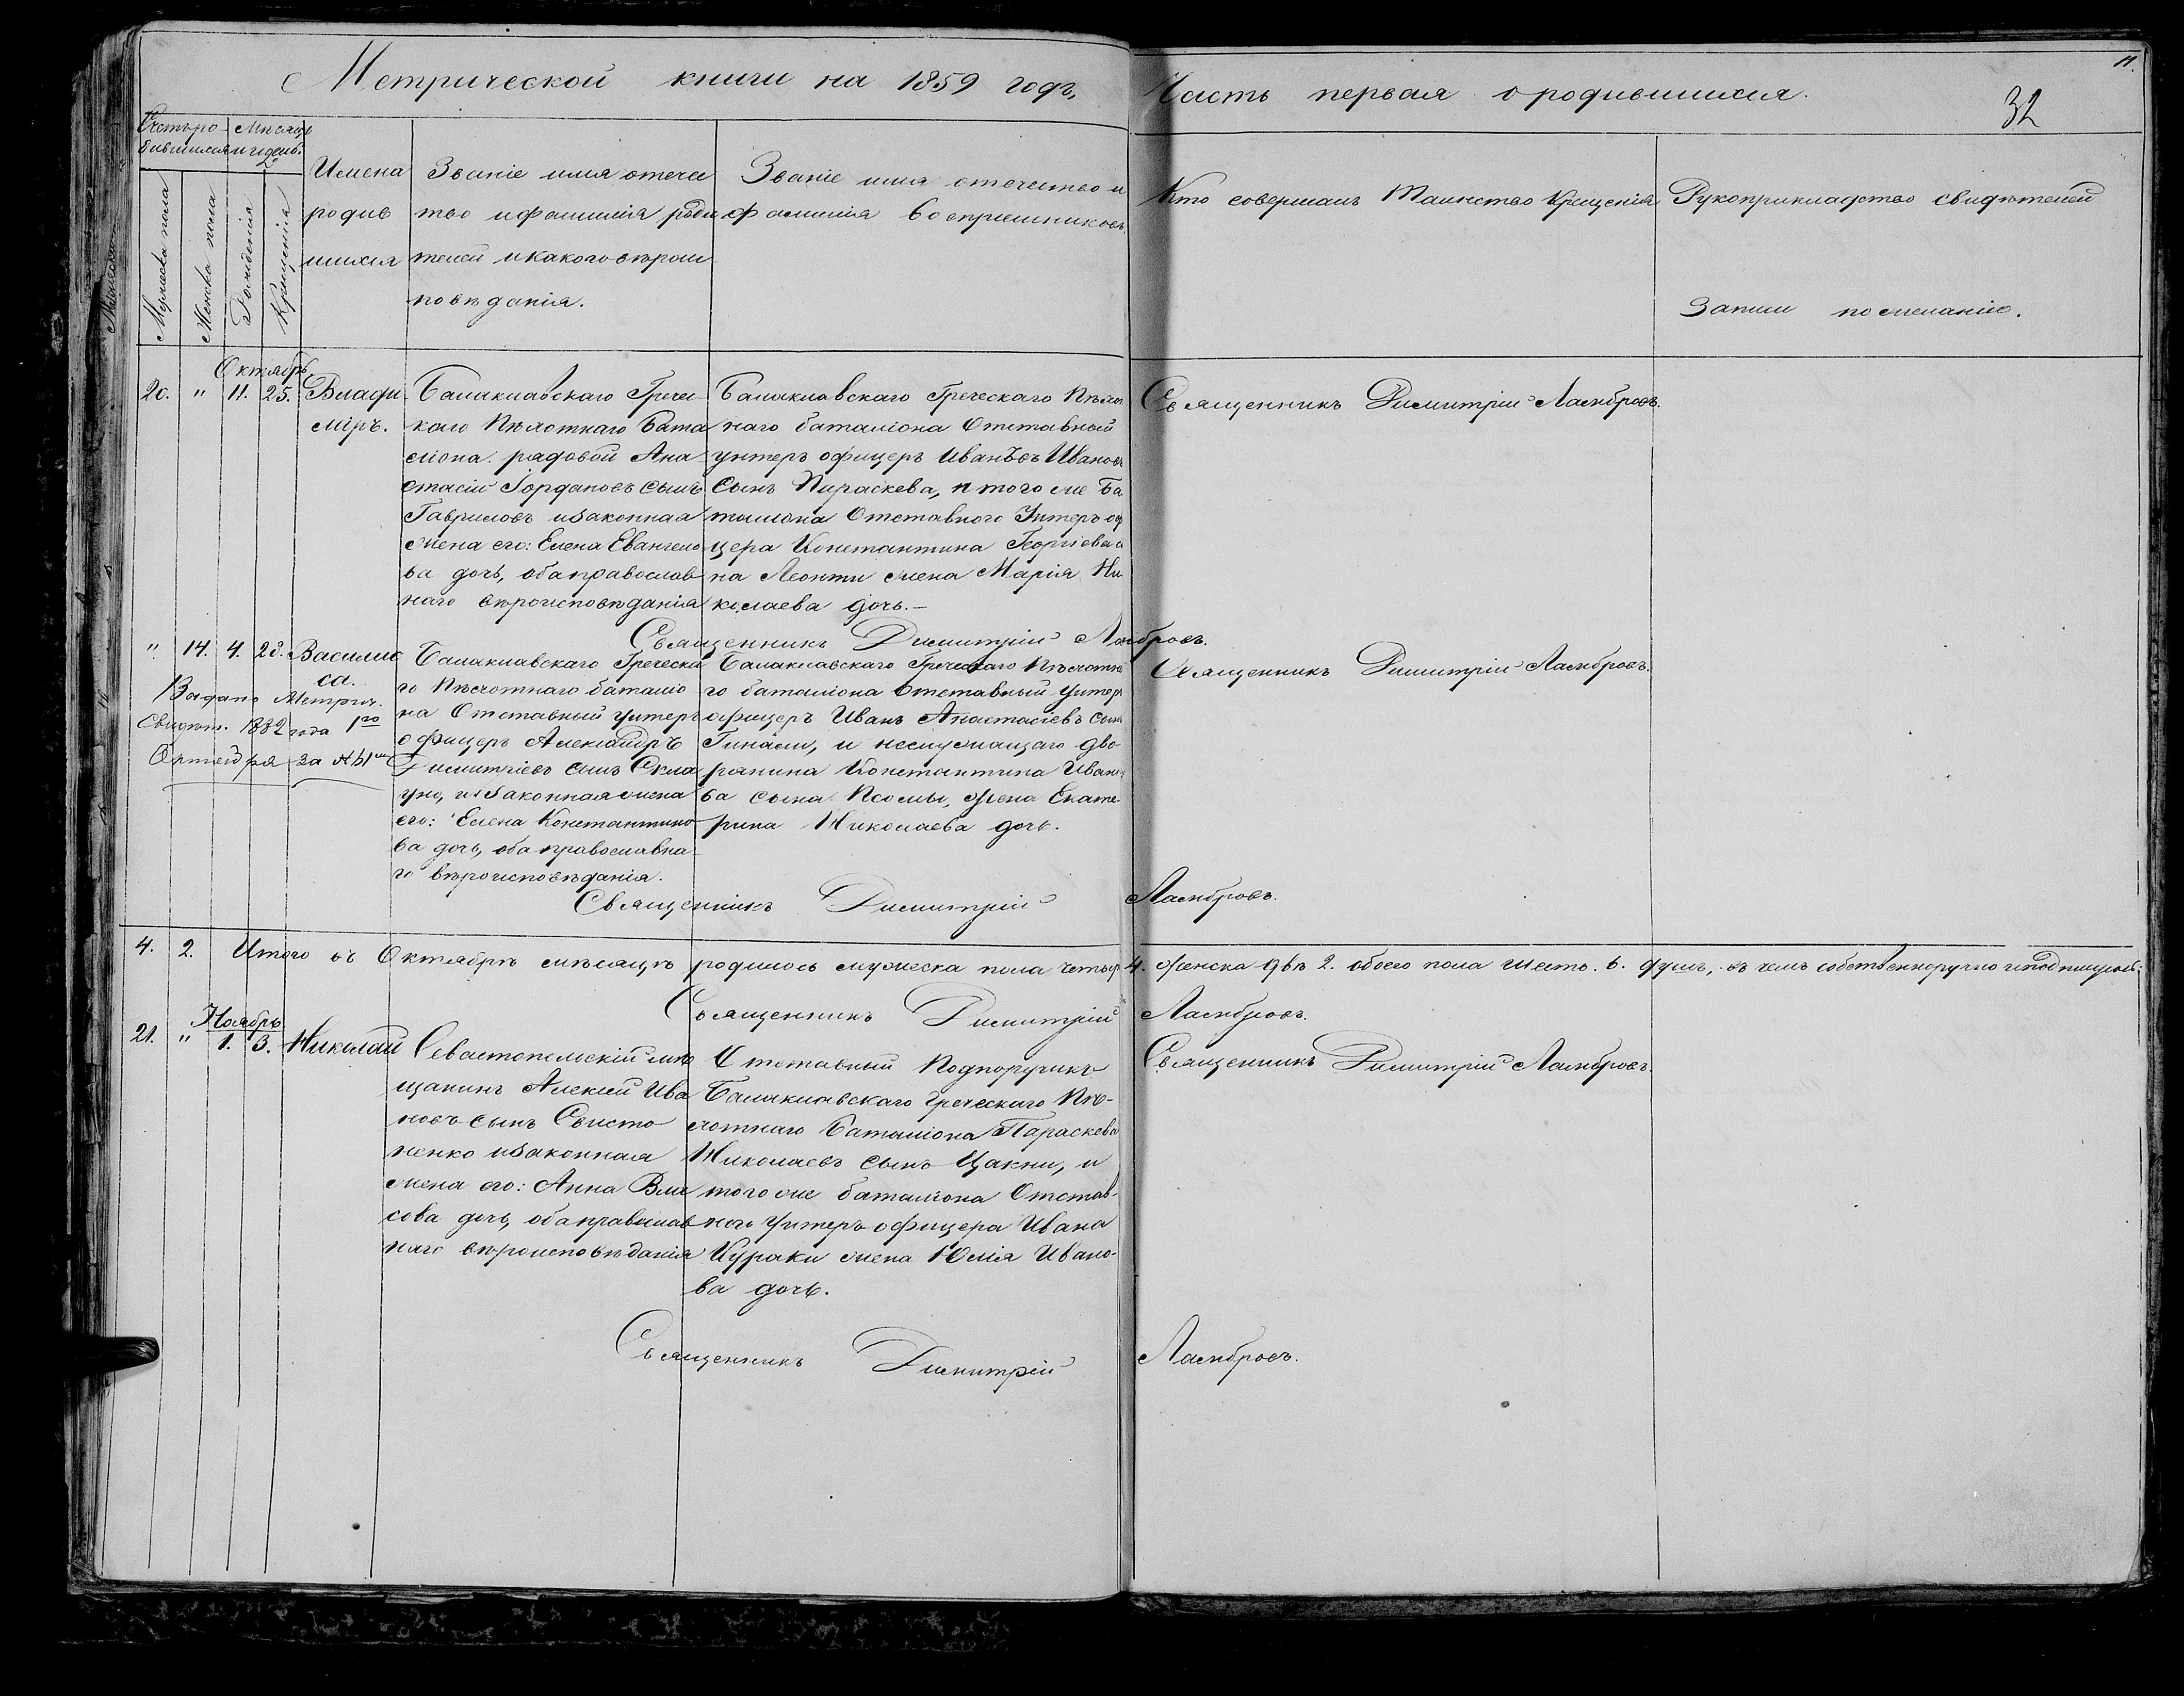 Метрической книги на 1859 годъ,
Часть первая о родившихся.
11.
32
Счетъ ро-
дившихся
Мѣсяцъ
и день.
Мужеска пола
Женска пола
Рожденія
Крещенія
Имена
родив
шихся
Званіе имя отечес
тво и фамилія роди
телей и какого вѣроис
повѣданія.
Званіе имя отечество и
фамилія воспріемниковъ.
Кто совершалъ Таинство Крещенія
Рукоприкладство свидѣтелей
Записи по желанію.
Октябрь
20. " 11. 25. Влади-
міръ.
Балаклавскаго Гречес-
каго Пѣхотнаго Бата
ліона рядовой Ана-
стасій Іордановъ сынъ
Гавриловъ и законная
жена его: Елена Евангело
ва дочь, оба православ
наго вѣроисповѣданія
Балаклавскаго Греческаго Пѣхот
наго баталіона Отставный
унтеръ офицеръ Иванъ Ивановъ
сынъ Параскева, и того же Ба
таліона Отставного Унтеръ оф
цера Константина Георгіева сы
на Леонти жена Марія Ни
колаева дочь.-
Священникъ Димитрій Ламбровъ.
Священникъ Димитрій Ламбровъ.
" 14. 4. 28. Василис
са.
Выдано Метрич.
Свидѣт. 1882 года 1го
Октября за №
Балаклавскаго Греческа
го Пѣхотнаго баталіо
на Отставный унтеръ
офицеръ Александръ
Димитріевъ сынъ Скла
уно, и законная жена
его: Елена Константино
ва дочь, оба православна-
го вѣроисповѣданія.
Балаклавскаго Греческаго Пѣхотна
го баталіона Отставный унтеръ
офицеръ Иванъ Анастасіевъ сынъ
Гинали, и неслужащаго дво-
рянина Константина Ивано
ва сына Псомы, жена Екате-
рина Николаева дочь.
Священникъ Димитрій Ламбровъ.
Священникъ Димитрій Ламбровъ.
4. 2. Итого въ Октябрѣ мѣсяцѣ родилось мужеска пола четыр 4. женска двѣ 2. обоего пола шесть. 6. душъ, въ чемъ собственноручно и подпишуюсь:
Священникъ Димитрій Ламбровъ.
Ноябрь
21. " 1. 3. Николай
Севастопольскій мѣ
щанинъ Алексѣй Ива
новъ сынъ Свисто
ненко и законная
жена его: Анна Вла
сова дочь, оба православ
наго вѣроисповѣданія
Отставный Подпоручикъ
Балаклавскаго Греческаго Пѣ-
хотнаго Баталіона Параскева
Николаевъ сынъ Цакни, и
того же баталіона Отстав-
ного Унтеръ офицера Ивана
Кураки жена Юлія Ивано-
ва дочь.
Священникъ Димитрій Ламбровъ.
Священникъ Димитрій Ламбровъ.